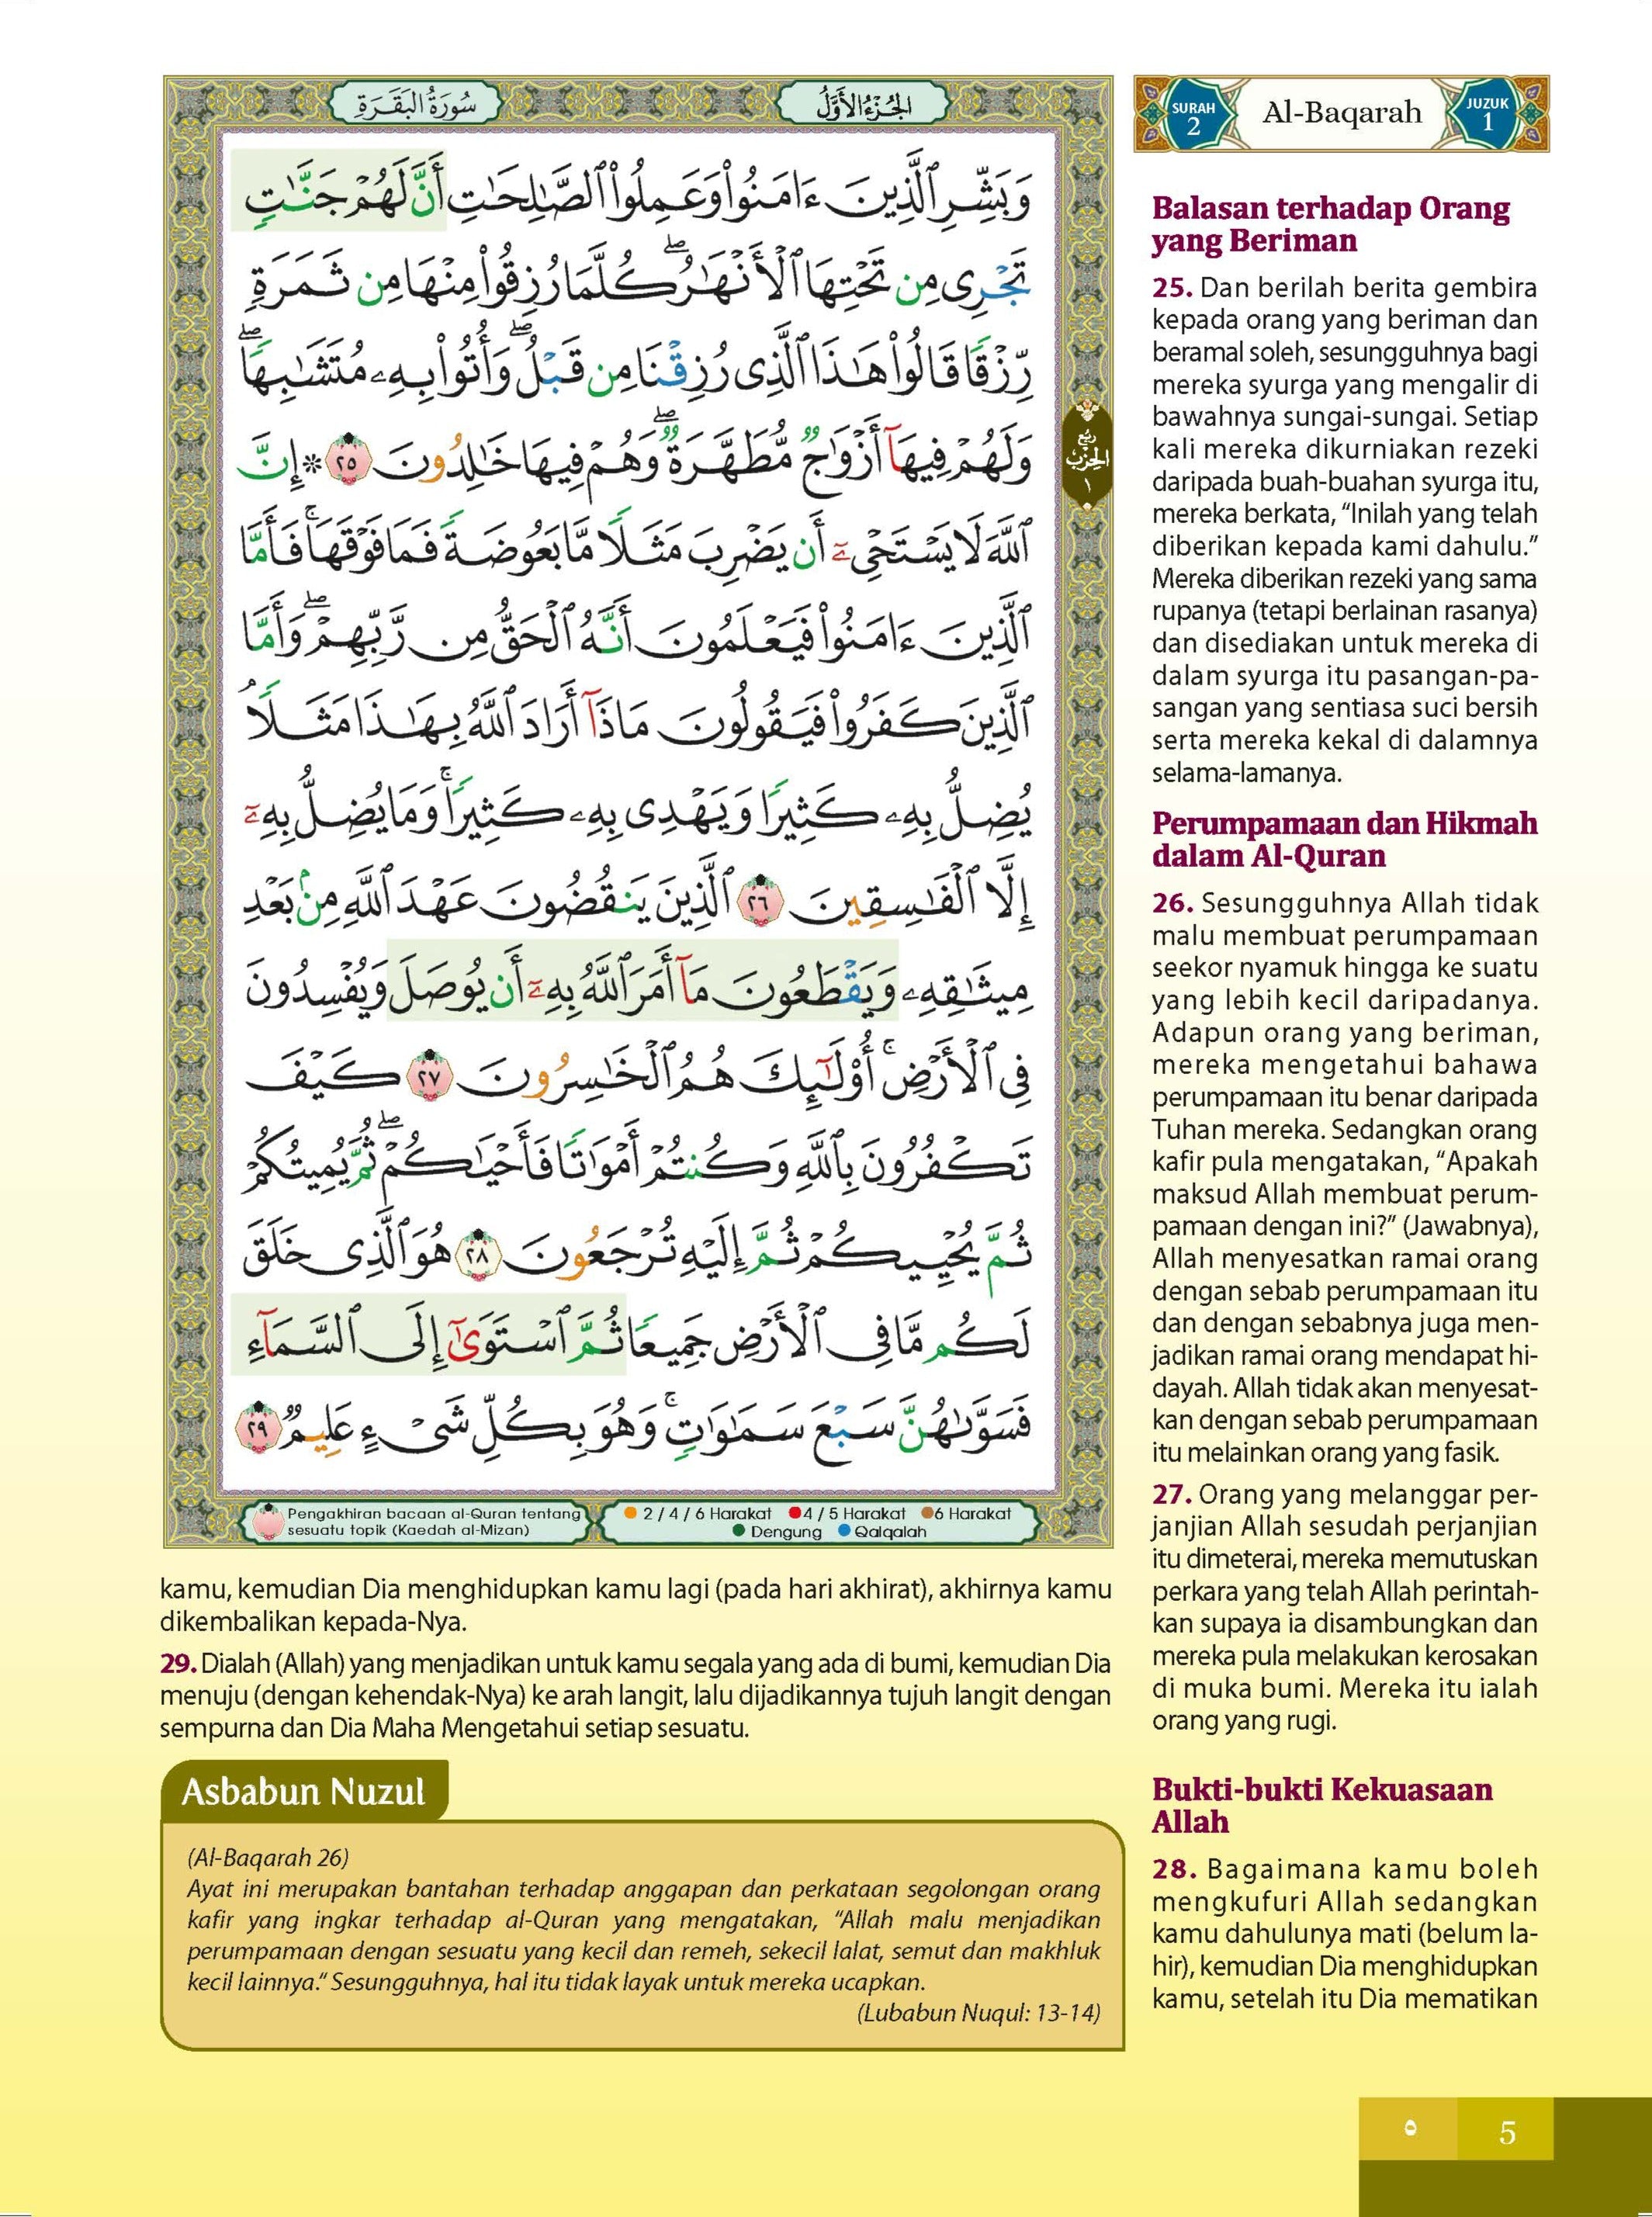 سُورَةُ البَقَرَةِ
الجُزْءُ الأَوَّلُ
SURAH
2
Al-Baqarah
JUZUK
1
وَبَشِّرِ ٱلَّذِينَ ءَامَنُوا۟ وَعَمِلُوا۟ ٱلصَّـٰلِحَـٰتِ أَنَّ لَهُمْ جَنَّـٰتٍ
تَجْرِى مِن تَحْتِهَا ٱلْأَنْهَـٰرُ ۖ كُلَّمَا رُزِقُوا۟ مِنْهَا مِن ثَمَرَةٍ
رِّزْقًا قَالُوا۟ هَـٰذَا ٱلَّذِى رُزِقْنَا مِن قَبْلُ ۖ وَأُتُوا۟ بِهِۦ مُتَشَـٰبِهًا ۖ
وَلَهُمْ فِيهَآ أَزْوَٰجٌ مُّطَهَّرَةٌ ۖ وَهُمْ فِيهَا خَـٰلِدُونَ ٢٥ * إِنَّ
ٱللَّهَ لَا يَسْتَحْىِۦٓ أَن يَضْرِبَ مَثَلًا مَّا بَعُوضَةً فَمَا فَوْقَهَا ۚ فَأَمَّا
ٱلَّذِينَ ءَامَنُوا۟ فَيَعْلَمُونَ أَنَّهُ ٱلْحَقُّ مِن رَّبِّهِمْ ۖ وَأَمَّا
ٱلَّذِينَ كَفَرُوا۟ فَيَقُولُونَ مَاذَآ أَرَادَ ٱللَّهُ بِهَـٰذَا مَثَلًا ۘ
يُضِلُّ بِهِۦ كَثِيرًا وَيَهْدِى بِهِۦ كَثِيرًا ۚ وَمَا يُضِلُّ بِهِۦٓ
إِلَّا ٱلْفَـٰسِقِينَ ٢٦ ٱلَّذِينَ يَنقُضُونَ عَهْدَ ٱللَّهِ مِنۢ بَعْدِ
مِيثَـٰقِهِۦ وَيَقْطَعُونَ مَآ أَمَرَ ٱللَّهُ بِهِۦٓ أَن يُوصَلَ وَيُفْسِدُونَ
فِى ٱلْأَرْضِ ۚ أُو۟لَـٰٓئِكَ هُمُ ٱلْخَـٰسِرُونَ ٢٧ كَيْفَ
تَكْفُرُونَ بِٱللَّهِ وَكُنتُمْ أَمْوَٰتًا فَأَحْيَـٰكُمْ ۖ ثُمَّ يُمِيتُكُمْ
ثُمَّ يُحْيِيكُمْ ثُمَّ إِلَيْهِ تُرْجَعُونَ ٢٨ هُوَ ٱلَّذِى خَلَقَ
لَكُم مَّا فِى ٱلْأَرْضِ جَمِيعًا ثُمَّ ٱسْتَوَىٰٓ إِلَى ٱلسَّمَآءِ
فَسَوَّىٰهُنَّ سَبْعَ سَمَـٰوَٰتٍ ۚ وَهُوَ بِكُلِّ شَىْءٍ عَلِيمٌ ٢٩
ربع
الحزب
١
Pengakhiran bacaan al-Quran tentang
sesuatu topik (Kaedah al-Mizan)
2 / 4 / 6 Harakat 4 / 5 Harakat 6 Harakat
Dengung Qalqalah
Balasan terhadap Orang
yang Beriman
25. Dan berilah berita gembira
kepada orang yang beriman dan
beramal soleh, sesungguhnya bagi
mereka syurga yang mengalir di
bawahnya sungai-sungai. Setiap
kali mereka dikurniakan rezeki
daripada buah-buahan syurga itu,
mereka berkata, “Inilah yang telah
diberikan kepada kami dahulu.”
Mereka diberikan rezeki yang sama
rupanya (tetapi berlainan rasanya)
dan disediakan untuk mereka di
dalam syurga itu pasangan-pa-
sangan yang sentiasa suci bersih
serta mereka kekal di dalamnya
selama-lamanya.
Perumpamaan dan Hikmah
dalam Al-Quran
26. Sesungguhnya Allah tidak
malu membuat perumpamaan
seekor nyamuk hingga ke suatu
yang lebih kecil daripadanya.
Adapun orang yang beriman,
mereka mengetahui bahawa
perumpamaan itu benar daripada
Tuhan mereka. Sedangkan orang
kafir pula mengatakan, “Apakah
maksud Allah membuat perum-
pamaan dengan ini?” (Jawabnya),
Allah menyesatkan ramai orang
dengan sebab perumpamaan itu
dan dengan sebabnya juga men-
jadikan ramai orang mendapat hi-
dayah. Allah tidak akan menyesat-
kan dengan sebab perumpamaan
itu melainkan orang yang fasik.
27. Orang yang melanggar per-
janjian Allah sesudah perjanjian
itu dimeterai, mereka memutuskan
perkara yang telah Allah perintah-
kan supaya ia disambungkan dan
mereka pula melakukan kerosakan
di muka bumi. Mereka itu ialah
orang yang rugi.
Bukti-bukti Kekuasaan
Allah
28. Bagaimana kamu boleh
mengkufuri Allah sedangkan
kamu dahulunya mati (belum la-
hir), kemudian Dia menghidupkan
kamu, setelah itu Dia mematikan
kamu, kemudian Dia menghidupkan kamu lagi (pada hari akhirat), akhirnya kamu
dikembalikan kepada-Nya.
29. Dialah (Allah) yang menjadikan untuk kamu segala yang ada di bumi, kemudian Dia
menuju (dengan kehendak-Nya) ke arah langit, lalu dijadikannya tujuh langit dengan
sempurna dan Dia Maha Mengetahui setiap sesuatu.
Asbabun Nuzul
(Al-Baqarah 26)
Ayat ini merupakan bantahan terhadap anggapan dan perkataan segolongan orang
kafir yang ingkar terhadap al-Quran yang mengatakan, “Allah malu menjadikan
perumpamaan dengan sesuatu yang kecil dan remeh, sekecil lalat, semut dan makhluk
kecil lainnya.” Sesungguhnya, hal itu tidak layak untuk mereka ucapkan.
(Lubabun Nuqul: 13-14)
٥
5